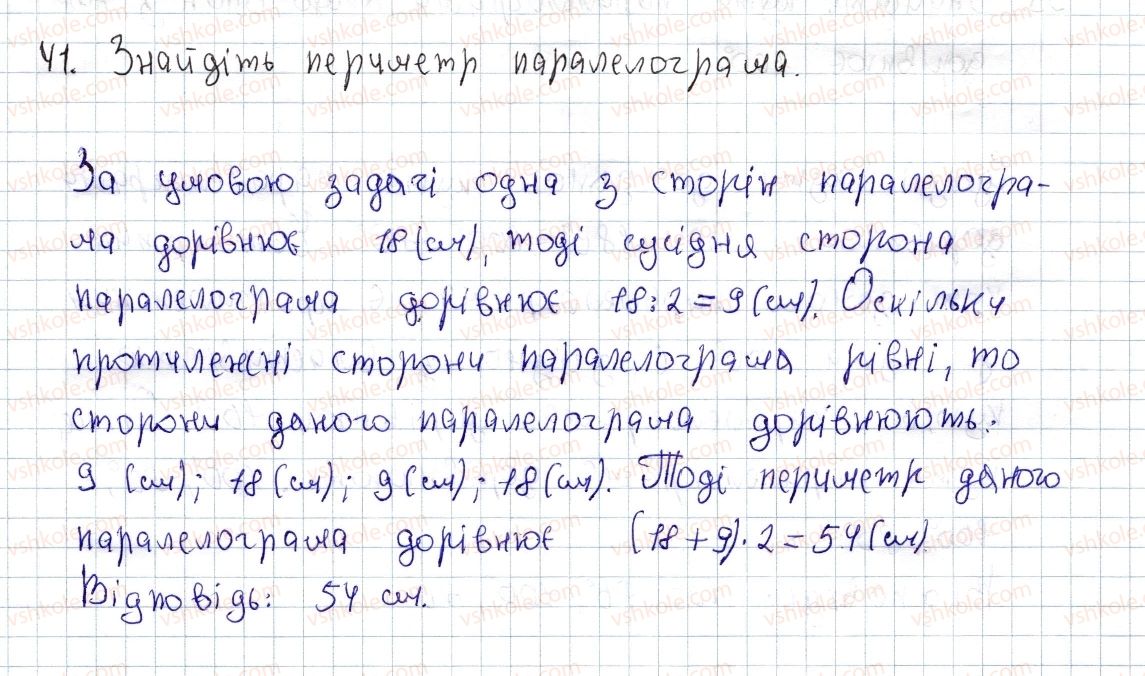 41. Знайдіть периметр паралелограма.
За умовою задачі одна з сторін паралелогра-
ма дорівнює 18 (см), тоді сусідня сторона
паралелограма дорівнює 18:2=9 (см). Оскільки
протилежні сторони паралелограма рівні, то
сторони даного паралелограма дорівнюють:
9 (см); 18 (см); 9 (см); 18 (см). Тоді периметр даного
паралелограма дорівнює (18+9)·2=54 (см)
Відповідь: 54 см.